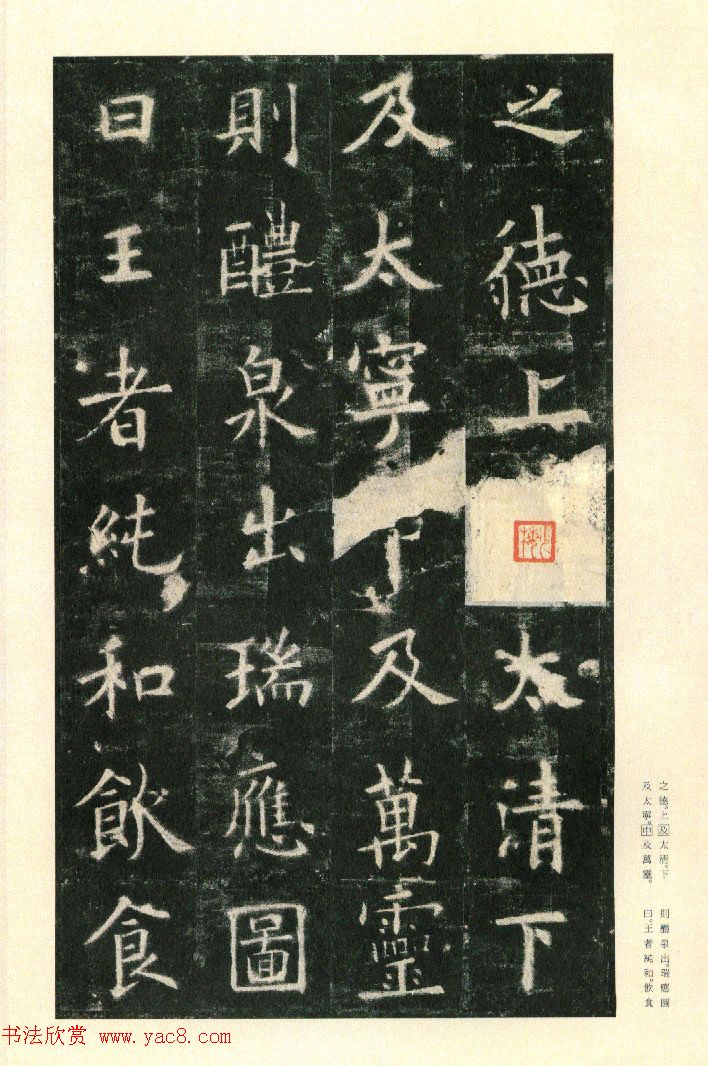 之德上太清下
及太寧及萬靈
則醴泉出瑞應圖
曰王者純和飲食
之德。上及太清。下
及太寧。中及萬靈。
則醴泉出。瑞應圖
曰。王者純和。飲食
书法欣赏 www.yac8.com